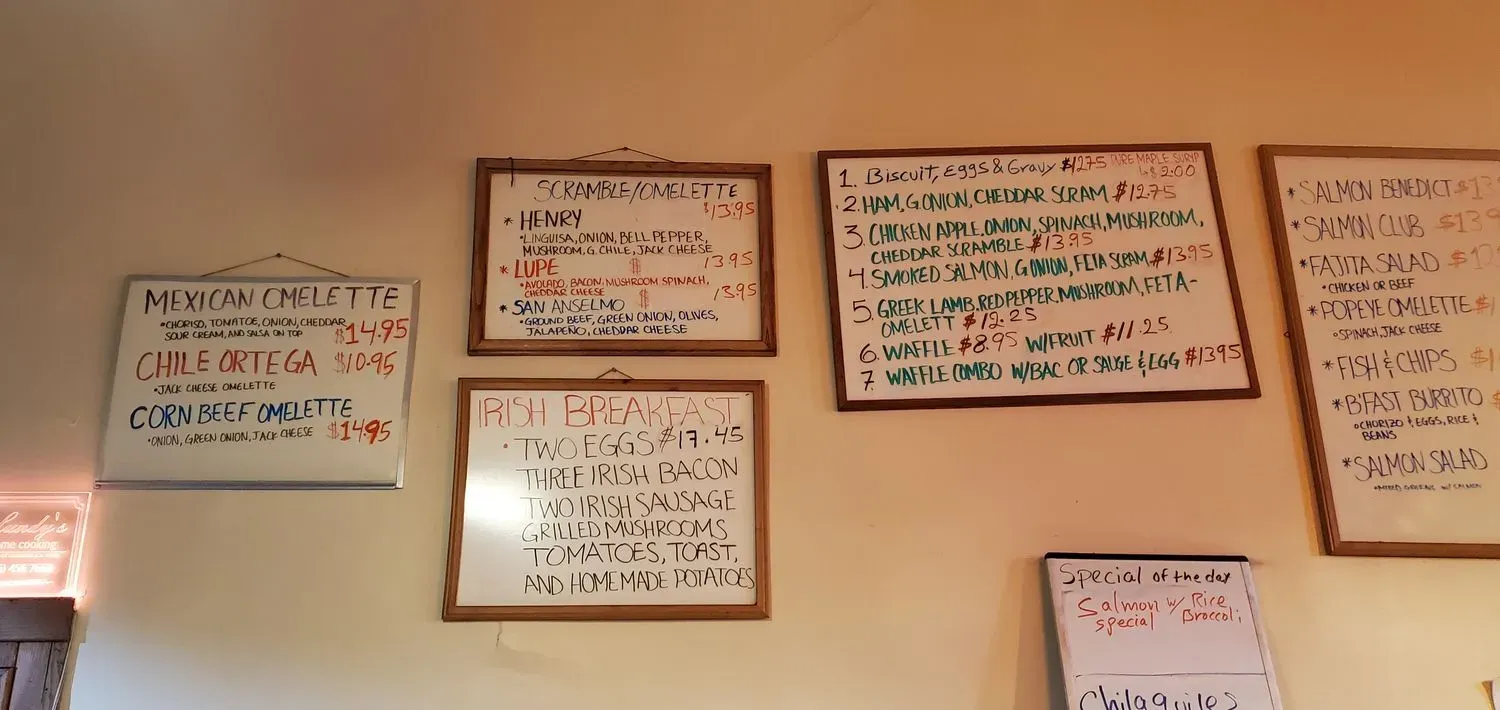 MEXICAN OMELETTE
•CHORISO, TOMATOE, ONION, CHEDDAR
SOUR CREAM, AND SALSA ON TOP $14.95
CHILE ORTEGA $10.95
•JACK CHEESE OMELETTE
CORN BEEF OMELETTE
•ONION, GREEN ONION, JACK CHEESE $14.95
me cooking
SCRAMBLE/OMELETTE
* HENRY $13.95
•LINGUISA, ONION, BELL PEPPER,
MUSHROOM, G. CHILE, JACK CHEESE
* LUPE $ 13.95
•AVOLADO, BACON, MUSHROOM SPINACH,
CHEDDAR CHEESE
* SAN ANSELMO $ 13.95
•GROUND BEEF, GREEN ONION, OLIVES,
JALAPEÑO, CHEDDAR CHEESE
IRISH BREAKFAST
• TWO EGGS $17.45
THREE IRISH BACON
TWO IRISH SAUSAGE
GRILLED MUSHROOMS
TOMATOES, TOAST,
AND HOMEMADE POTATOES
1. Biscuit, Eggs & Gravy $12.75 PURE MAPLE SURYP
$2.00
2. HAM, G.ONION, CHEDDAR SCRAM $12.75
3. CHICKEN APPLE, ONION, SPINACH, MUSHROOM,
CHEDDAR SCRAMBLE $13.95
4. SMOKED SALMON, G.ONION, FETA SCRAM $13.95
5. GREEK LAMB, RED PEPPER, MUSHROOM, FETA-
OMELETT $12.25
6. WAFFLE $8.95 W/FRUIT $11.25
7. WAFFLE COMBO W/BAC OR SAUGE & EGG $1395
* SALMON BENEDICT $13
* SALMON CLUB $13.9
* FAJITA SALAD $13
• CHICKEN OR BEEF
* POPEYE OMELETTE $1
•SPINACH, JACK CHEESE
* FISH & CHIPS $1
* B'FAST BURRITO $
•CHORIZO & EGGS, RICE &
BEANS
* SALMON SALAD
•MIXED GREENS W/ SALMON
Special of the day
Salmon w/ Rice
special Broccoli
Chilaquiles